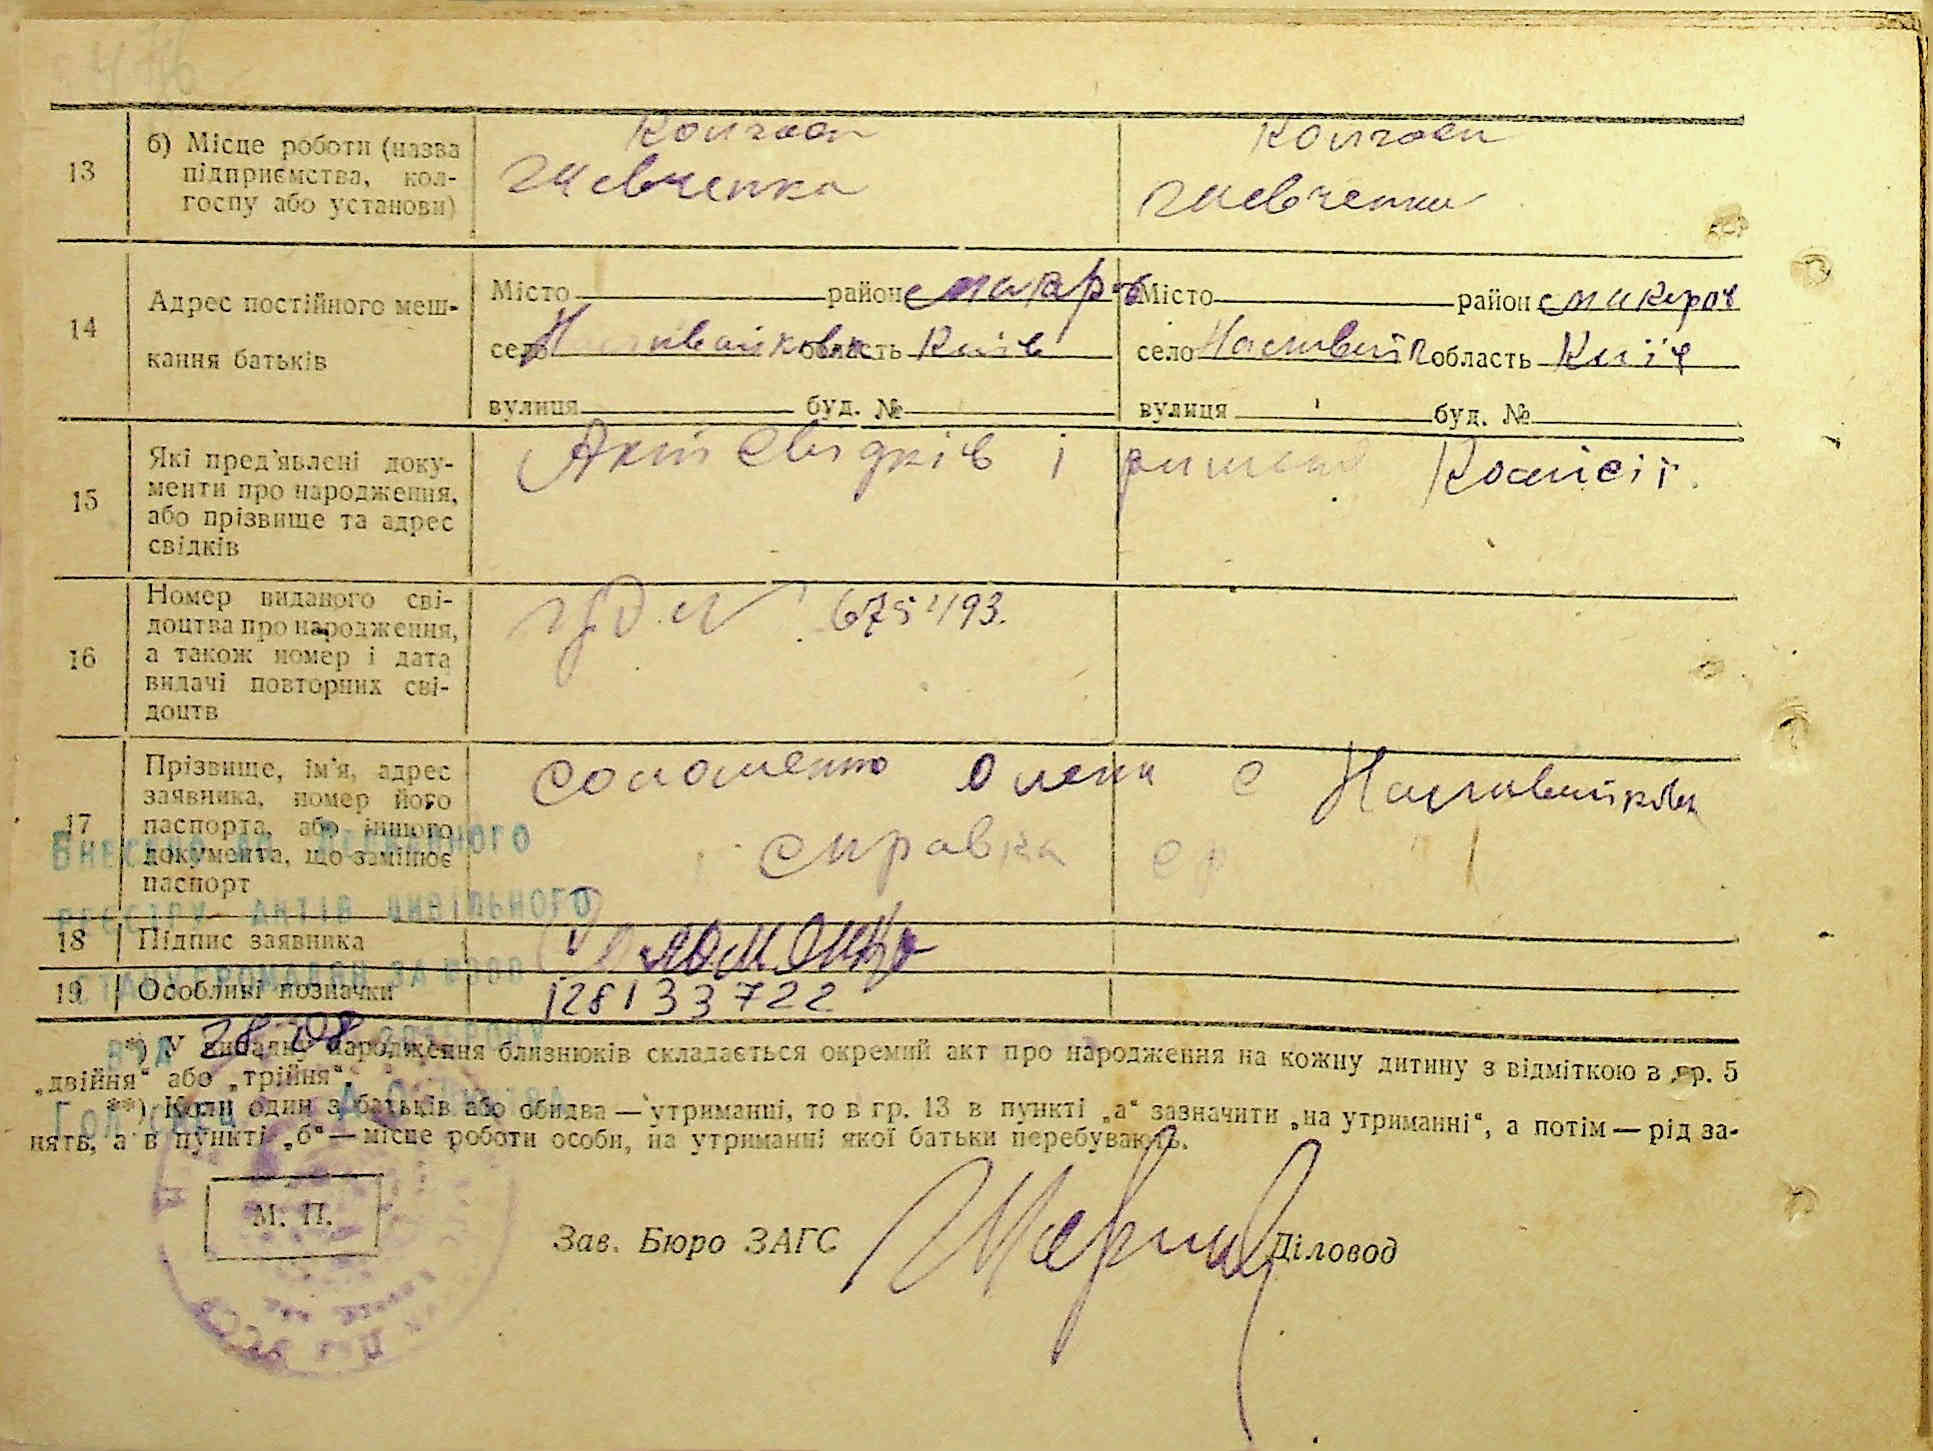 13
б) Місце роботи (назва
підприємства, кол-
госпу або установи)
Колгосп
Шевченка
Колгосп
Шевченка
14
Адрес постійного меш-
кання батьків
Місто район Макарів
село Наливайковка область Київ
вулиця буд. №
Місто район Макарів
село Наливайк область Київ
вулиця буд. №
15
Які пред'явлені доку-
менти про народження,
або прізвище та адрес
свідків
Акт свідків і рішення Комісії.
16
Номер виданого сві-
доцтва про народження,
а також номер і дата
видачі повторних сві-
доцтв
675493.
17
Прізвище, ім'я, адрес
заявника, номер його
паспорта, або іншого
документа, що замінює
паспорт
Соломенко Олена с Наливайковка
справка ср
Внесено до Державного
реєстру актів цивільного
стану громадян за
18
Підпис заявника
Соломенко
19
Особливі позначки
128133722
*) У випадку народження близнюків складається окремий акт про народження на кожну дитину з відміткою в гр. 5
„двійня“ або „трійня“.
**) Коли один з батьків або обидва — утриманні, то в гр. 13 в пункті „а“ зазначити „на утриманні“, а потім — рід за-
нять, а в пункті „б“ — місце роботи особи, на утриманні якої батьки перебувають.
М. П.
Зав. Бюро ЗАГС
Діловод